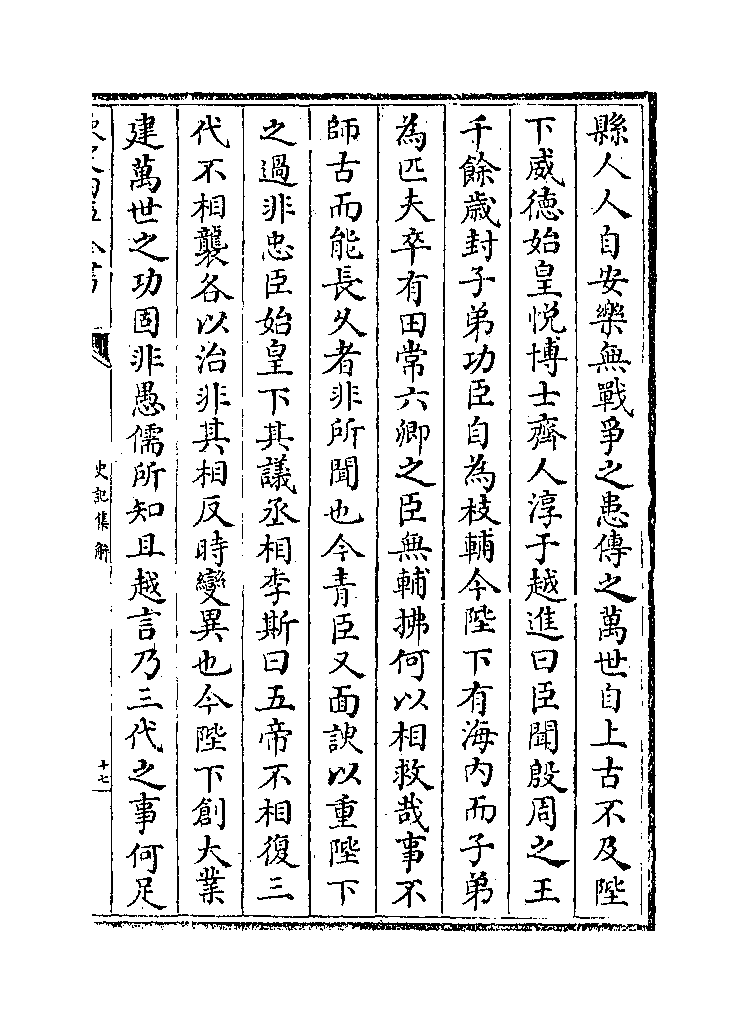 縣人人自安樂無戰爭之患傳之萬世自上古不及陛
下威德始皇悅博士齊人淳于越進曰臣聞殷周之王
千餘歲封子弟功臣自為枝輔今陛下有海內而子弟
為匹夫卒有田常六卿之臣無輔拂何以相救哉事不
師古而能長久者非所聞也今青臣又面諛以重陛下
之過非忠臣始皇下其議丞相李斯曰五帝不相復三
代不相襲各以治非其相反時變異也今陛下創大業
建萬世之功固非愚儒所知且越言乃三代之事何足
史記集解
十七